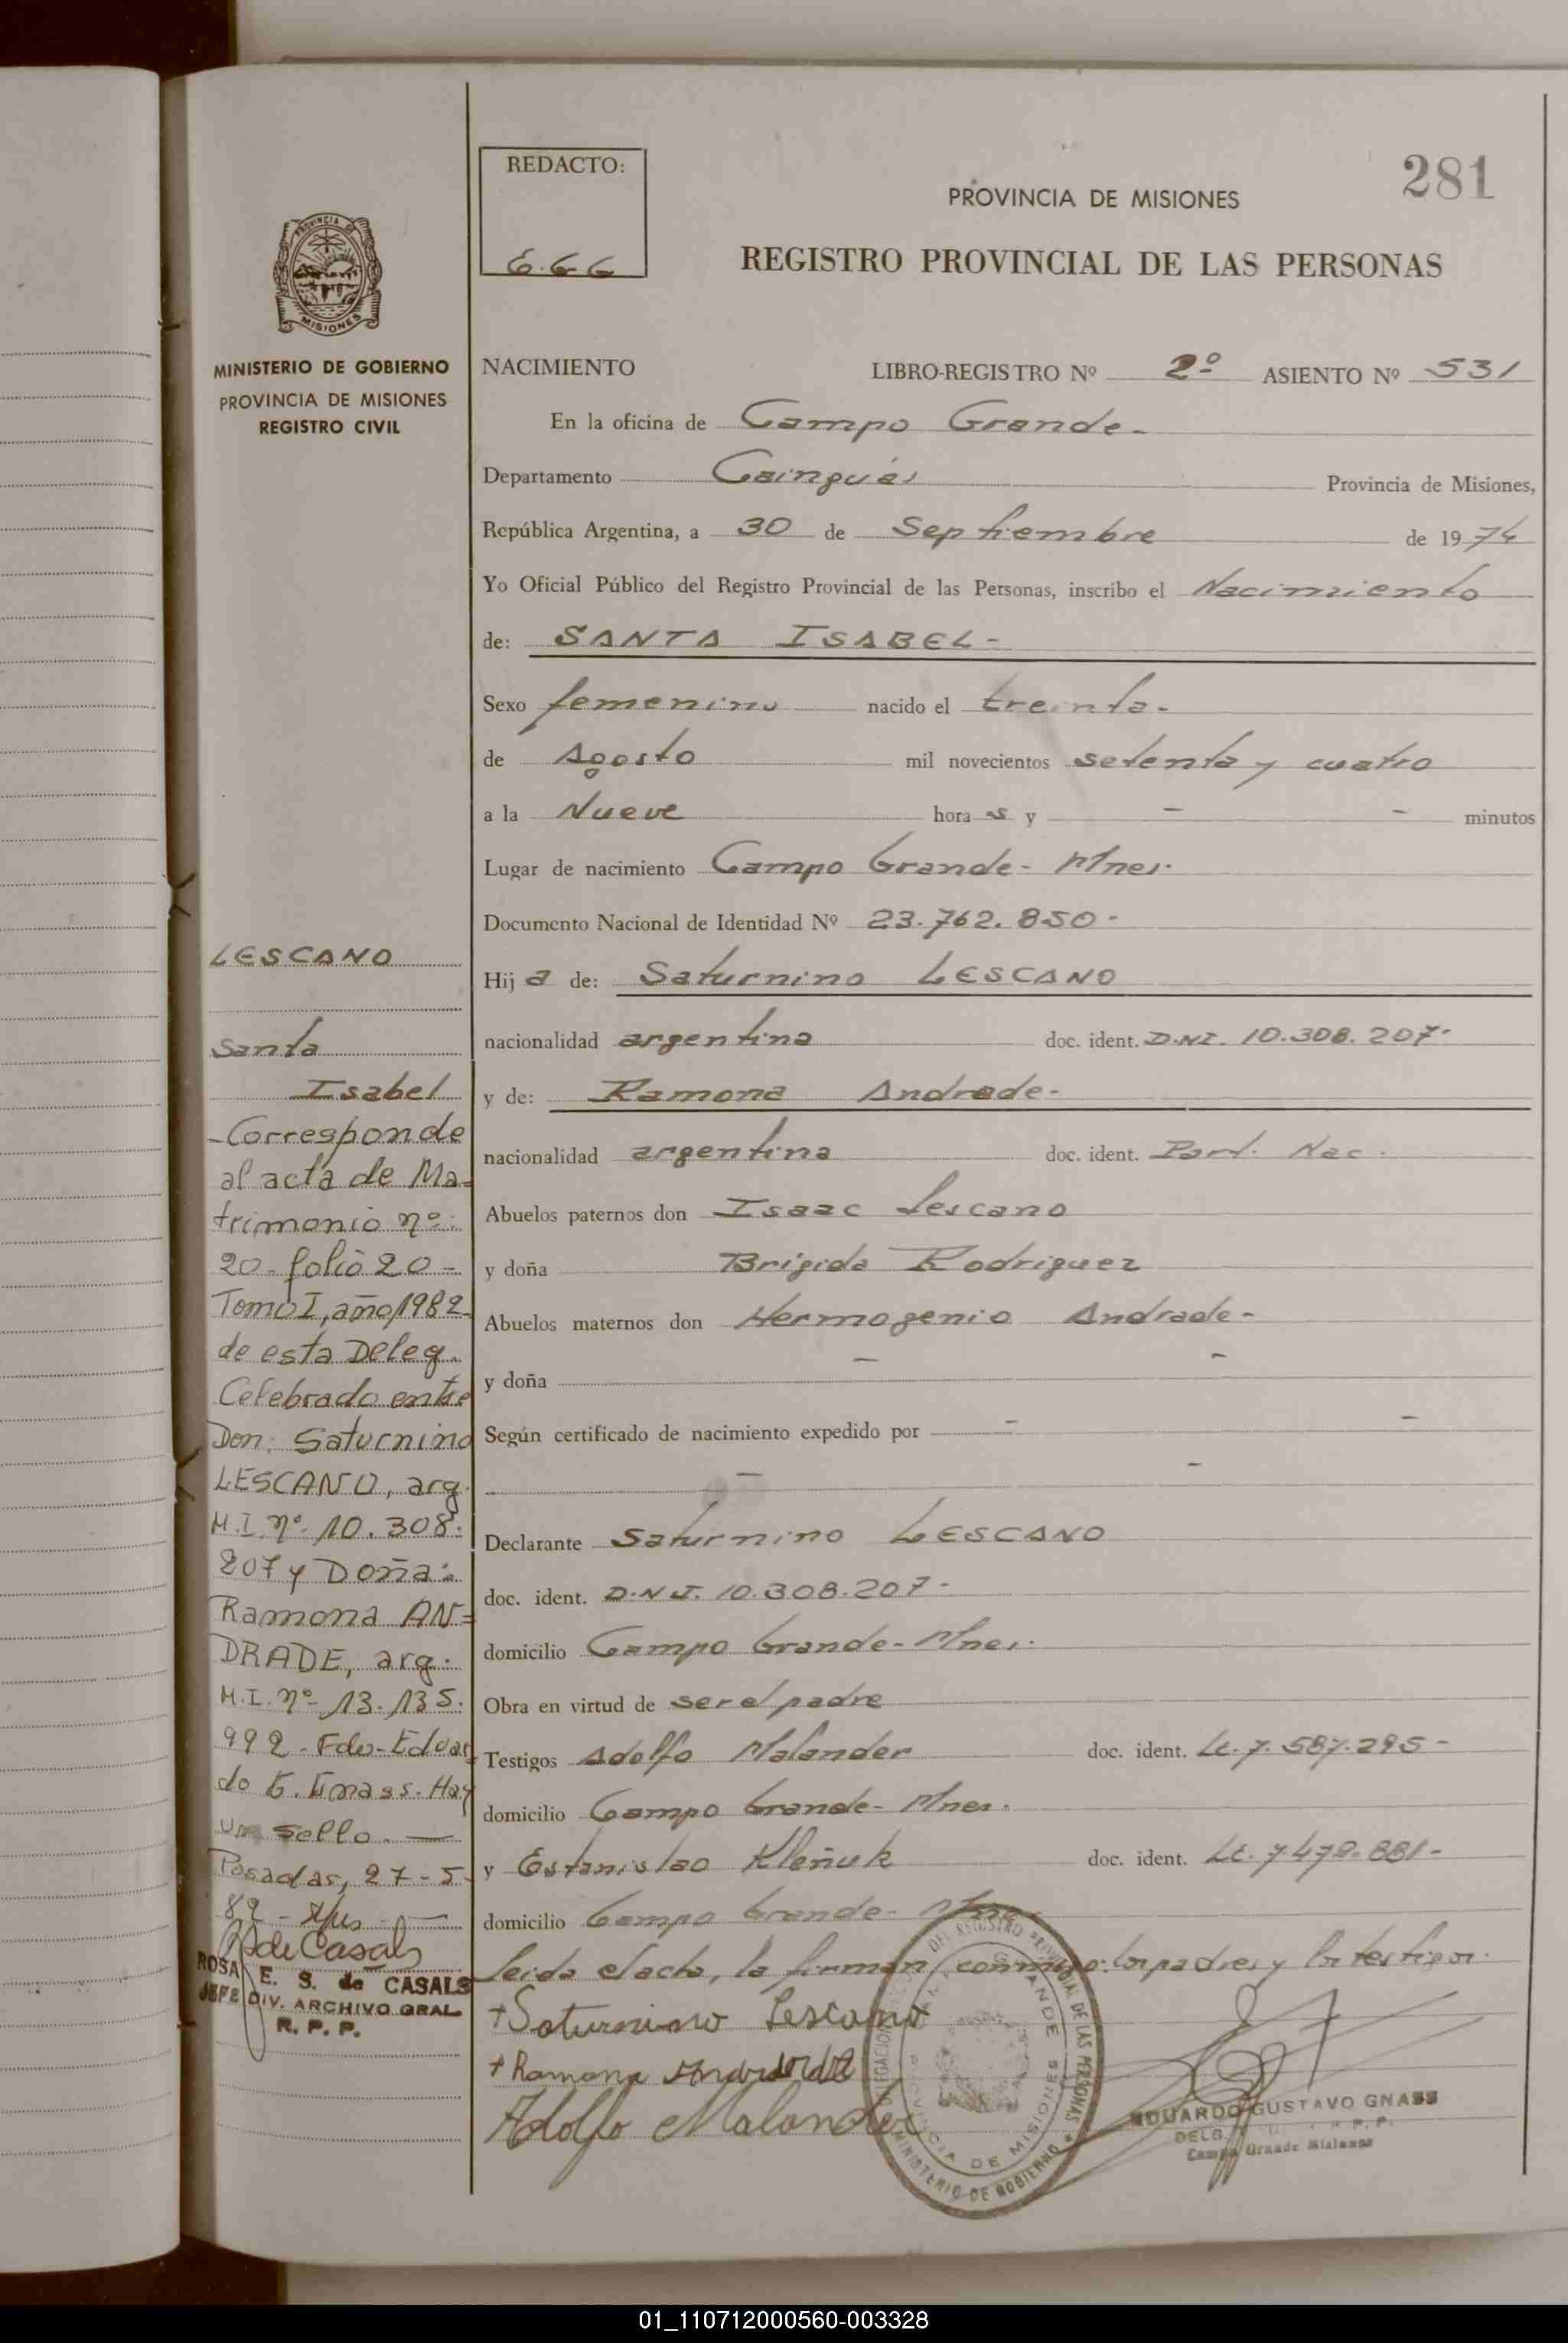 REDACTO:
G.G.G
281
PROVINCIA DE MISIONES
REGISTRO PROVINCIAL DE LAS PERSONAS
PROVINCIA
MISIONES
MINISTERIO DE GOBIERNO
PROVINCIA DE MISIONES
REGISTRO CIVIL
NACIMIENTO LIBRO-REGISTRO Nº 2º ASIENTO Nº 531
En la oficina de Campo Grande-
Departamento Cainguás Provincia de Misiones,
República Argentina, a 30 de Septiembre de 1974
Yo Oficial Público del Registro Provincial de las Personas, inscribo el Nacimiento
de: SANTA ISABEL-
Sexo femenino nacido el treinta-
de Agosto mil novecientos setenta y cuatro
a la Nueve horas y - - minutos
Lugar de nacimiento Campo Grande- Mnes.
Documento Nacional de Identidad Nº 23.762.850-
Hija de: Saturnino LESCANO
nacionalidad argentina doc. ident. D.N.I. 10.308.207-
y de: Ramona Andrade-
nacionalidad argentina doc. ident. Part. Nac.
Abuelos paternos don Isaac Lescano
y doña Brigida Rodriguez
Abuelos maternos don Hermogenio Andrade-
y doña - -
Según certificado de nacimiento expedido por - -
- -
Declarante Saturnino LESCANO
doc. ident. D.N.I. 10.308.207-
domicilio Campo Grande- Mnes.
Obra en virtud de ser el padre
Testigos Adolfo Malander doc. ident. L.E. 7.587.295-
domicilio Campo Grande- Mnes.
y Estanislao Kleñuk doc. ident. L.E. 7.479.881-
domicilio Campo Grande- Mnes.
Leida el acta, la firman conmigo: los padres y los testigos.
+Saturnino Lescano
+Ramona
Adolfo Malander
LESCANO
Santa
Isabel
-Corresponde
al acta de Ma-
trimonio nº:
20-folio 20-
Tomo I, año 1982-
de esta Deleg.
Celebrado entre
Don: Saturnino
LESCANO, arg.
M.I. nº 10.308.
207 y Doña:
Ramona AN=
DRADE, arg.
M.I. nº 13.135.
992-Fdo-Eduar
do G. Gnass. Hay
un sello. —
Posadas, 27-5-
82-
R de Casals
ROSA E. S. de CASALS
JEFE DIV. ARCHIVO GRAL.
R. P. P.
DEL REGISTRO PROVINCIAL DE LAS PERSONAS
MINISTERIO DE GOBIERNO
PROVINCIA DE MISIONES
EDUARDO GUSTAVO GNASS
DELG. R.P.P.
Campo Grande Misiones
01_110712000560-003328